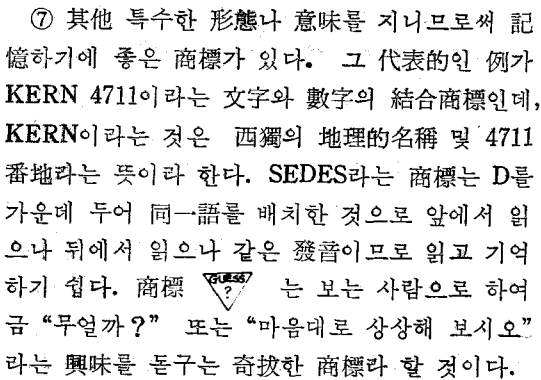 ⑦ 其他 특수한 形態나 意味를 지니므로써 記
憶하기에 좋은 商標가 있다. 그 代表的인 例가
KERN 4711이라는 文字와 數字의 結合商標인데,
KERN이라는 것은 西獨의 地理的名稱 및 4711
番地라는 뜻이라 한다. SEDES라는 商標는 D를
가운데 두어 同一語를 배치한 것으로 앞에서 읽
으나 뒤에서 읽으나 같은 發音이므로 읽고 기억
하기 쉽다. 商標 GUESS ? 는 보는 사람으로 하여
금 “무얼까?” 또는 “마음대로 상상해 보시오”
라는 興味를 돋구는 奇拔한 商標라 할 것이다.